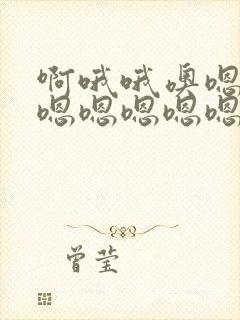 啊哦哦奥嗯
嗯嗯嗯嗯嗯
曾莹